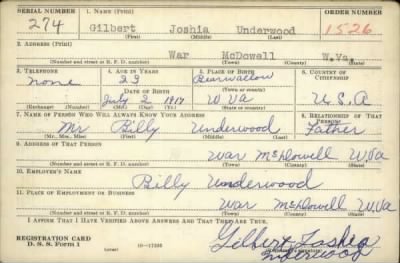 SERIAL NUMBER 1. NAME (Print) ORDER NUMBER
274 Gilbert Joshia Underwood 1526
(First) (Middle) (Last)
2. ADDRESS (Print)
War McDowell W.Va.
(Number and street or R. F. D. number) (Town) (County) (State)
3. TELEPHONE 4. AGE IN YEARS 5. PLACE OF BIRTH 6. COUNTRY OF CITIZENSHIP
none 23 Bearwallow
DATE OF BIRTH (Town or county)
July 2 1917 W Va U.S.A
(Exchange) (Number) (Mo.) (Day) (Yr.) (State or country)
7. NAME OF PERSON WHO WILL ALWAYS KNOW YOUR ADDRESS 8. RELATIONSHIP OF THAT PERSON
Mr Billy Underwood Father
(Mr., Mrs., Miss) (First) (Middle) (Last)
9. ADDRESS OF THAT PERSON
War McDowell W.Va
(Number and street or R. F. D. number) (Town) (County) (State)
10. EMPLOYER'S NAME
Billy Underwood
11. PLACE OF EMPLOYMENT OR BUSINESS
War McDowell W.Va
(Number and street or R. F. D. number) (Town) (County) (State)
I AFFIRM THAT I HAVE VERIFIED ABOVE ANSWERS AND THAT THEY ARE TRUE.
REGISTRATION CARD Gilbert Joshia
D. S. S. Form 1 16—17105 Underwood